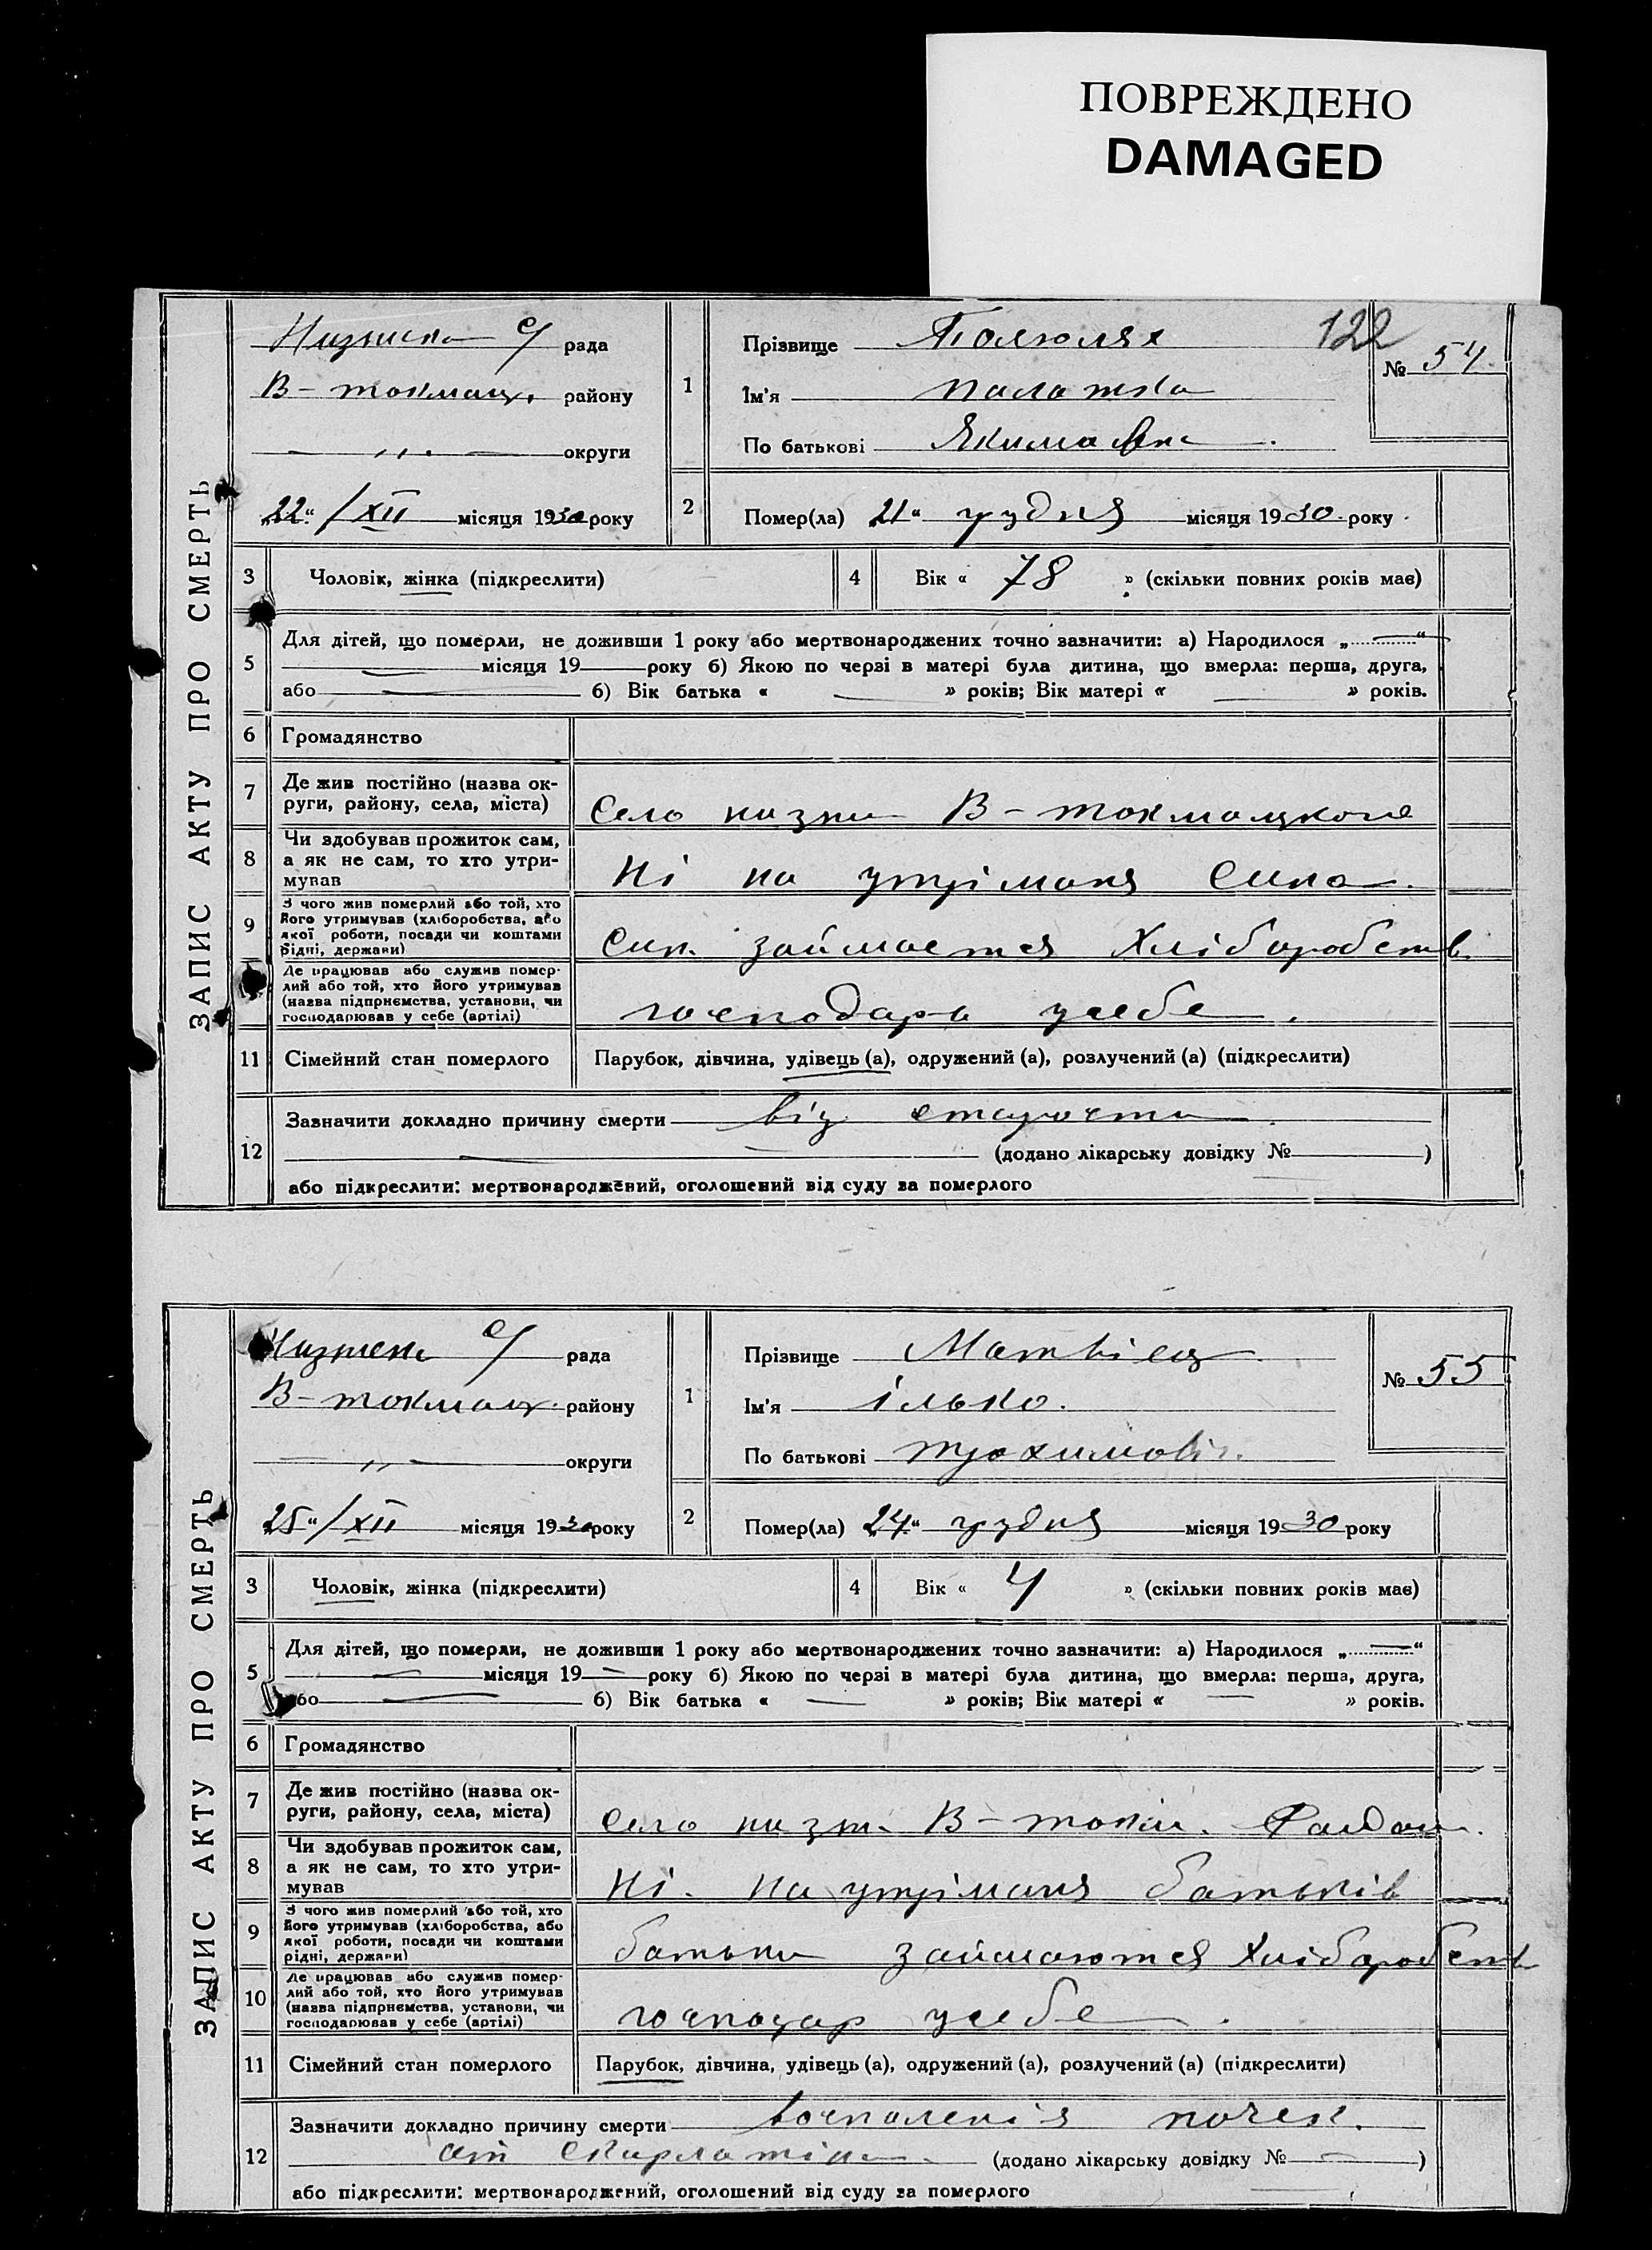 ПОВРЕЖДЕНО
DAMAGED
ЗАПИС АКТУ ПРО СМЕРТЬ
с/ рада
В-токмацк. району
— „ — округи
„22“/XII місяця 1930 року
1
Прізвище
Ім'я
По батькові Якимовна
122
№ 54
2
Помер(ла) 21“ грудня місяця 1930 року
3 Чоловік, жінка (підкреслити)
4 Вік « 78 » (скільки повних років має)
5
Для дітей, що померли, не доживши 1 року або мертвонароджених точно зазначити: а) Народилося „—“
— місяця 19 року б) Якою по черзі в матері була дитина, що вмерла: перша, друга,
або — б) Вік батька « — » років; Вік матері « — » років.
6 Громадянство
7 Де жив постійно (назва ок-
руги, району, села, міста)
Село В-токмацкого
8 Чи здобував прожиток сам,
а як не сам, то хто утри-
мував
Ні на утріманя Сина.
9 З чого жив померлий або той, хто
його утримував (хліборобства, або
якої роботи, посади чи коштами
рідні, держави)
Син займается Хлібаробств.
Де працював або служив помер-
лий або той, хто його утримував
(назва підприємства, установи, чи
господарював у себе (артілі)
господара усебе.
11 Сімейний стан померлого
Парубок, дівчина, удівець (а), одружений (а), розлучений (а) (підкреслити)
12
Зазначити докладно причину смерти від старости
— (додано лікарську довідку № )
або підкреслити: мертвонароджений, оголошений від суду за померлого
ЗАПИС АКТУ ПРО СМЕРТЬ
с/ рада
В-токмацк. району
— „ — округи
25“/XII місяця 1930 року
1
Прізвище Матвіец
Ім'я ілько.
По батькові трохимовіч.
№ 55
2
Помер(ла) 24“ грудня місяця 1930 року
3 Чоловік, жінка (підкреслити)
4 Вік « 4 » (скільки повних років має)
5
Для дітей, що померли, не доживши 1 року або мертвонароджених точно зазначити: а) Народилося „—“
— місяця 19— року б) Якою по черзі в матері була дитина, що вмерла: перша, друга,
або — б) Вік батька « — » років; Вік матері « — » років.
6 Громадянство
7 Де жив постійно (назва ок-
руги, району, села, міста)
Село В-токм.
8 Чи здобував прожиток сам,
а як не сам, то хто утри-
мував
Ні. На утріманя батьків
9 З чого жив померлий або той, хто
його утримував (хліборобства, або
якої роботи, посади чи коштами
рідні, держави)
батьки займаются Хлібаробств
10 Де працював або служив помер-
лий або той, хто його утримував
(назва підприємства, установи, чи
господарював у себе (артілі)
господар усебе.
11 Сімейний стан померлого
Парубок, дівчина, удівець (а), одружений (а), розлучений (а) (підкреслити)
12
Зазначити докладно причину смерти воспаленія почек.
от Скарлатіни. (додано лікарську довідку № — )
або підкреслити: мертвонароджений, оголошений від суду за померлого